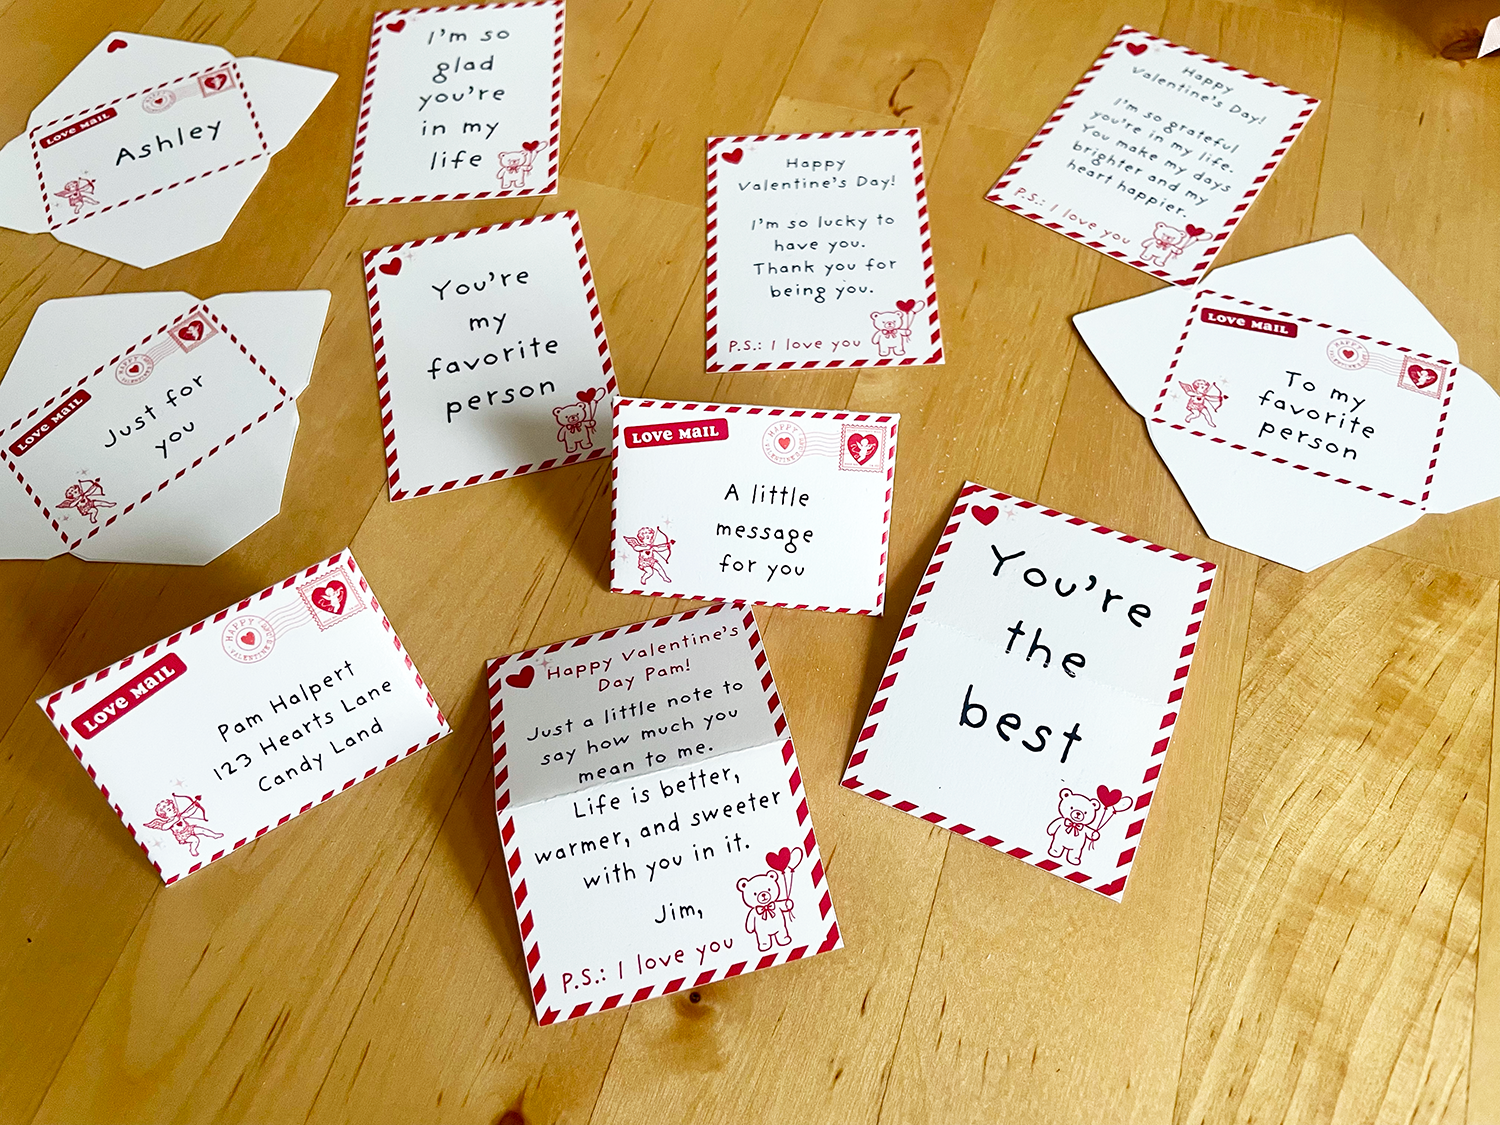 LOVE MAIL
Ashley
I'm so
glad
you're
in my
life
Happy
Valentine's Day!
I'm so lucky to
have you.
Thank you for
being you.
P.S.: I love you
Happy
Valentine's Day!
I'm so grateful
you're in my life.
You make my days
brighter and my
heart happier.
P.S.: I love you
LOVE MAIL
Just for
you
You're
my
favorite
person
LOVE MAIL
HAPPY
VALENTINE'S
A little
message
for you
LOVE MAIL
To my
favorite
person
LOVE MAIL
HAPPY
VALENTINE'S
Pam Halpert
123 Hearts Lane
Candy Land
Happy Valentine's
Day Pam!
Just a little note to
say how much you
mean to me.
Life is better,
warmer, and sweeter
with you in it.
Jim,
P.S.: I love you
You're
the
best